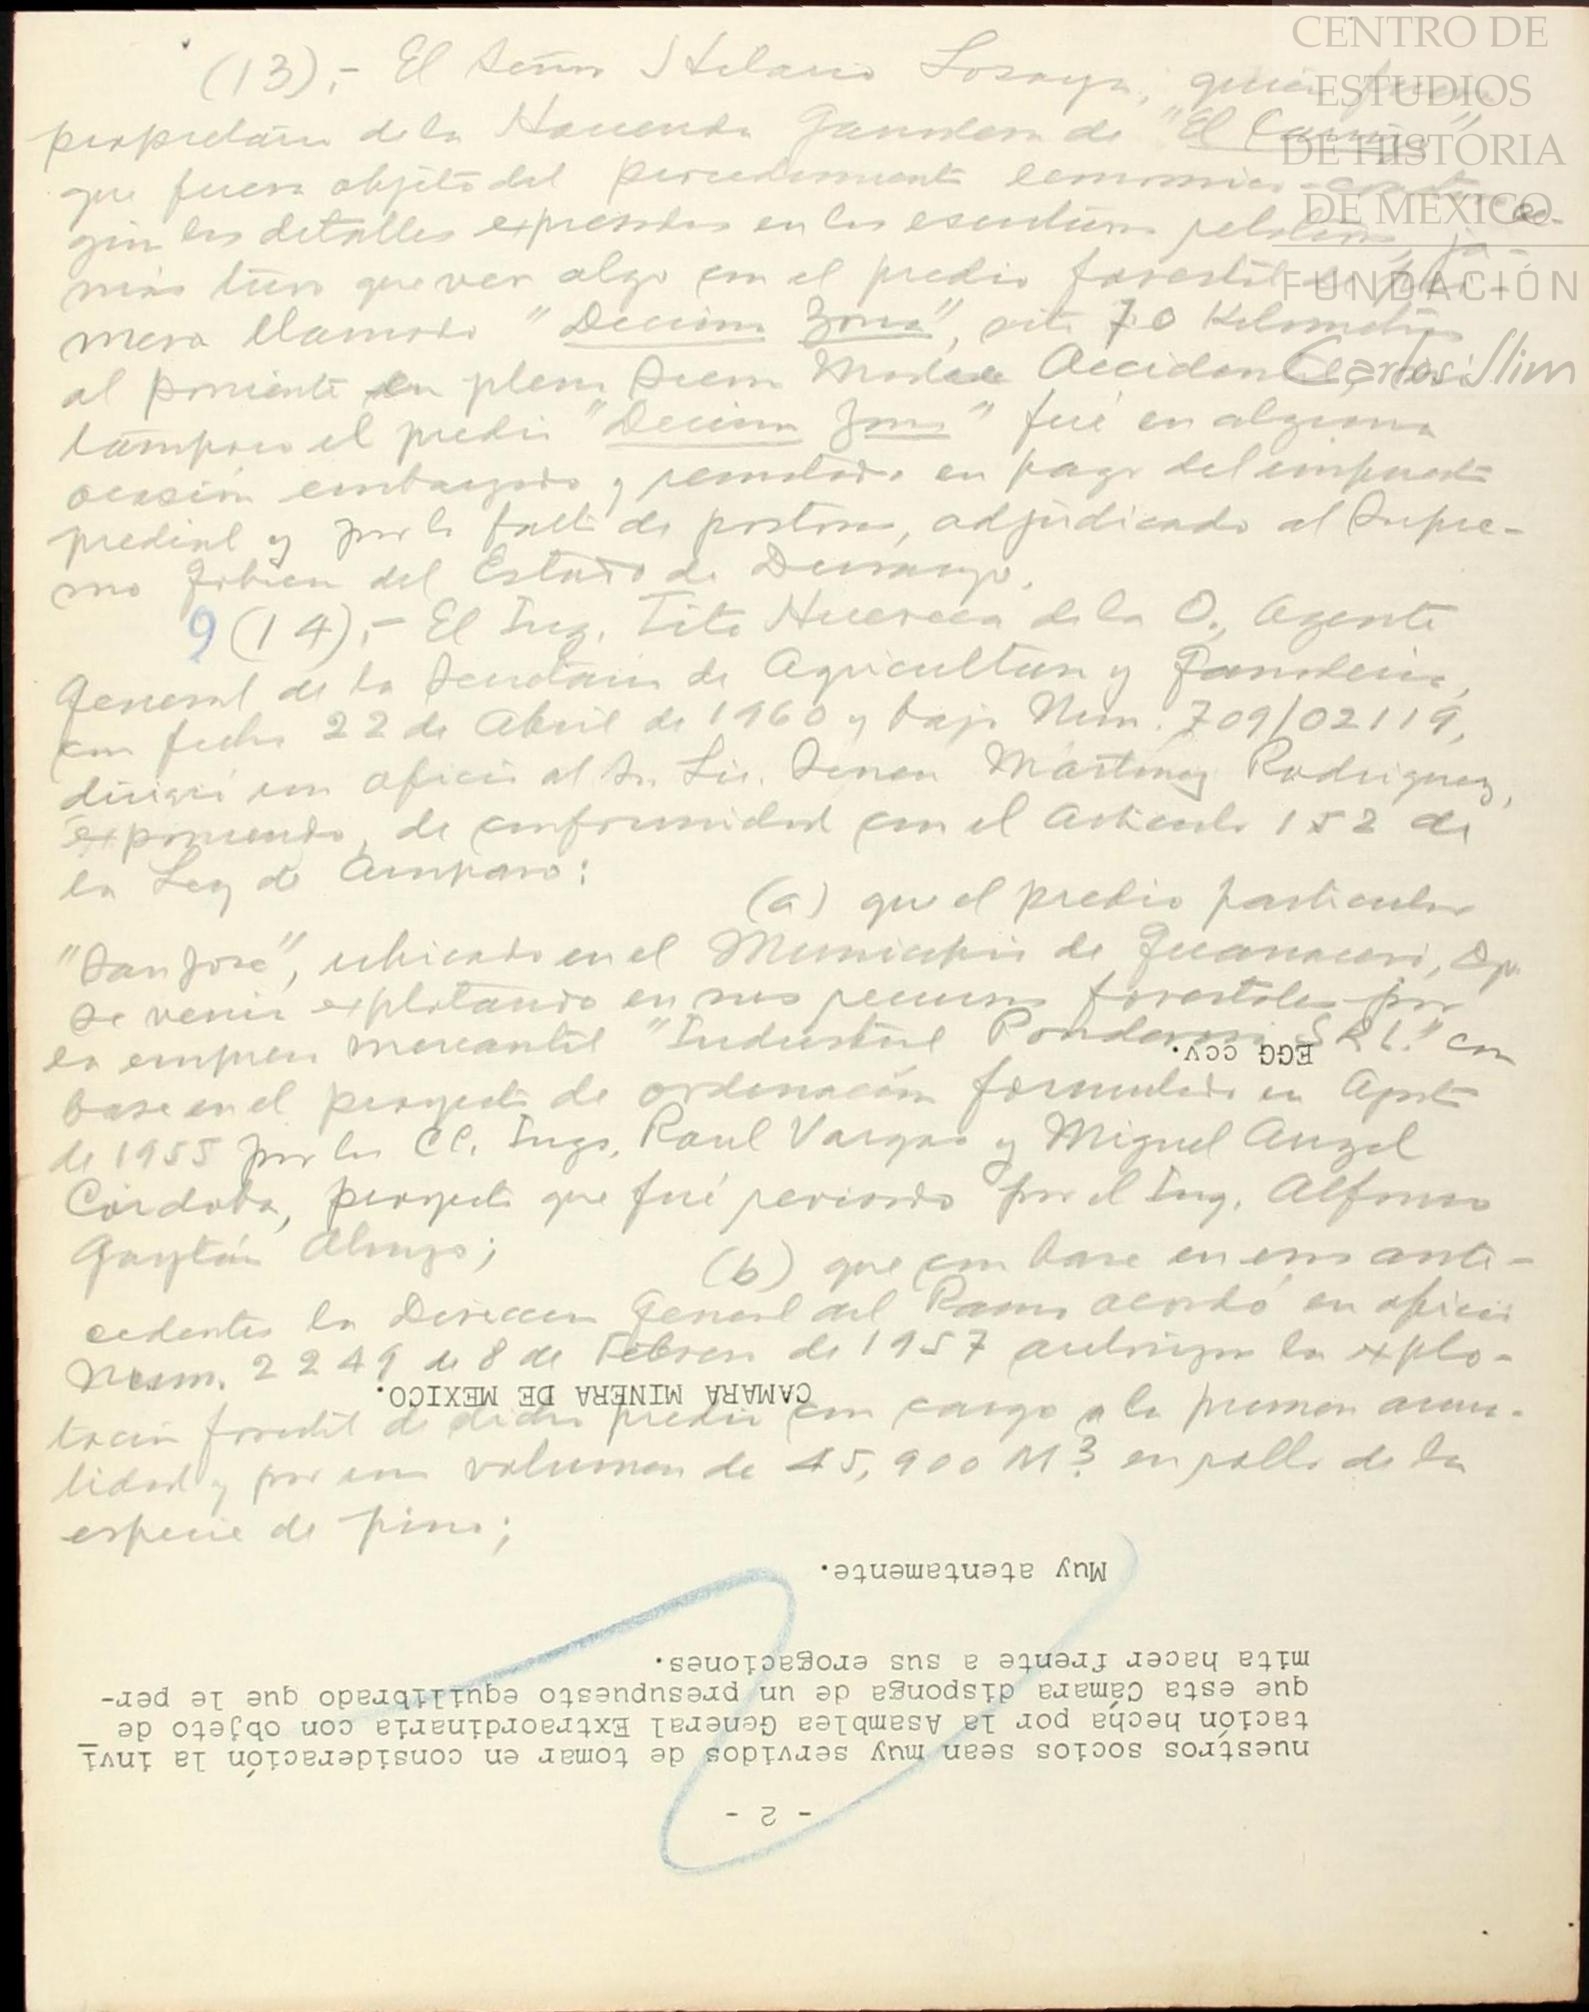 CENTRO DE
ESTUDIOS
DE HISTORIA
DE MEXICO
FUNDACIÓN
Carlos Slim
(13).- El Señor Hilario Lozoya, quien fuera
propietario de la Hacienda Ganadera de "El Carrizo"
que fuera objeto del procedimiento economico- se-
gún los detalles expresados en las escrituras relativas, ja-
más tuvo que ver algo con el predio forestal de pri-
mera llamado "Decima Zona", sito 70 Kilometros
al poniente en plena Sierra Madre Occidental,
tampoco el predio "Decima Zona" fué en alguna
ocasión embargado y rematado en pago del impuesto
predial y por la falta de postores, adjudicado al Supre-
mo Gobierno del Estado de Durango.
9 (14).- El Ing. Tito Huereca de la O., Agente
General de la Secretaria de Agricultura y Ganaderia,
con fecha 22 de Abril de 1960 y bajo Núm. 709/02119,
dirigió un oficio al Sr. Lic. Senen Martinez Rodriguez,
exponiendo, de conformidad con el Articulo 152 de
la Ley de Amparo:
(a) que el predio particular
"San José", ubicado en el Municipio de Guanacevi, Dgo.
se venia explotando en sus recursos forestales por
la empresa mercantil "Industrial Ponderosa S R L." con
EGG ccv.
base en el proyecto de ordenación formulado en Agosto
de 1955 por los CC. Ings. Raul Vargas y Miguel Angel
Córdoba, proyecto que fué revisado por el Ing. Alfonso
Gaytán Alonzo;
(b) que con base en esos ante-
cedentes la Direccion General del Ramo acordó en oficio
Num. 2249 de 8 de Febrero de 1957 autorizar la explo-
CAMARA MINERA DE MEXICO.
tación forestal de dicho predio con cargo a la primera anua-
lidad y por un volumen de 45,900 M3 en rollo de la
especie de pino;
Muy atentamente.
mita hacer frente a sus erogaciones.
que esta Cámara disponga de un presupuesto equilibrado que le per-
tación hecha por la Asamblea General Extraordinaria con objeto de
nuestros socios sean muy servidos de tomar en consideración la invi
- 2 -